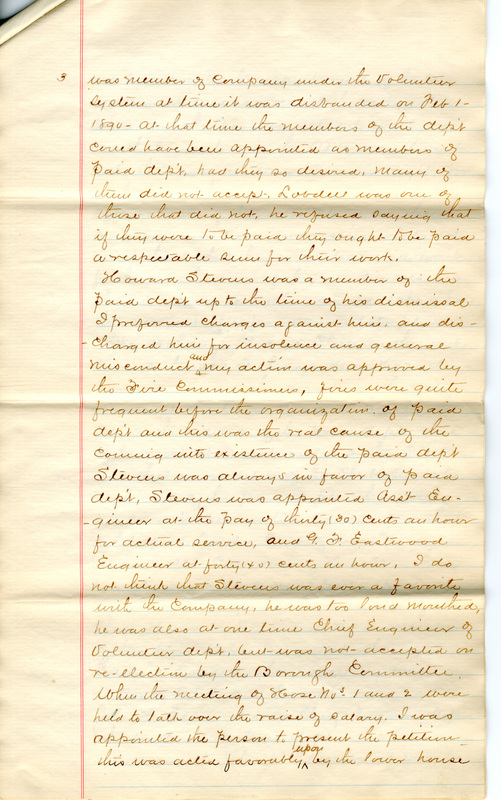 3 was member of Company under the Volunteer
System at time it was disbanded on Feb 1-
1890- at that time the members of the dept
could have been appointed as members of
Paid dept. had they so desired. Many of
them did not accept. Lobdell was one of
those that did not, he refused saying that
if they were to be paid they ought to be paid
a respectable sum for their work.
Howard Stevens was a member of the
Paid dept up to the time of his dismissal
I preferred charges against him, and dis-
-charged him for insolence and general
misconduct and my action was approved by
the Fire Commissioners, fires were quite
frequent before the organization of paid
dept and this was the real cause of the
coming into existence of the Paid dept
Stevens was always in favor of Paid
dept, Stevens was appointed Asst En-
-gineer at the pay of thirty (30) cents an hour
for actual service, and G. F. Eastwood
Engineer at forty (40) cents an hour, I do
not think that Stevens was ever a favorite
with the Company, he was too loud mouthed,
he was also at one time Chief Engineer of
Volunteer dept, but was not accepted on
re-election by the Borough Committee.
When the meeting of Hose Nos. 1 and 2 were
held to talk over the raise of salary. I was
appointed the person to present the petition
this was acted favorably upon by the lower house